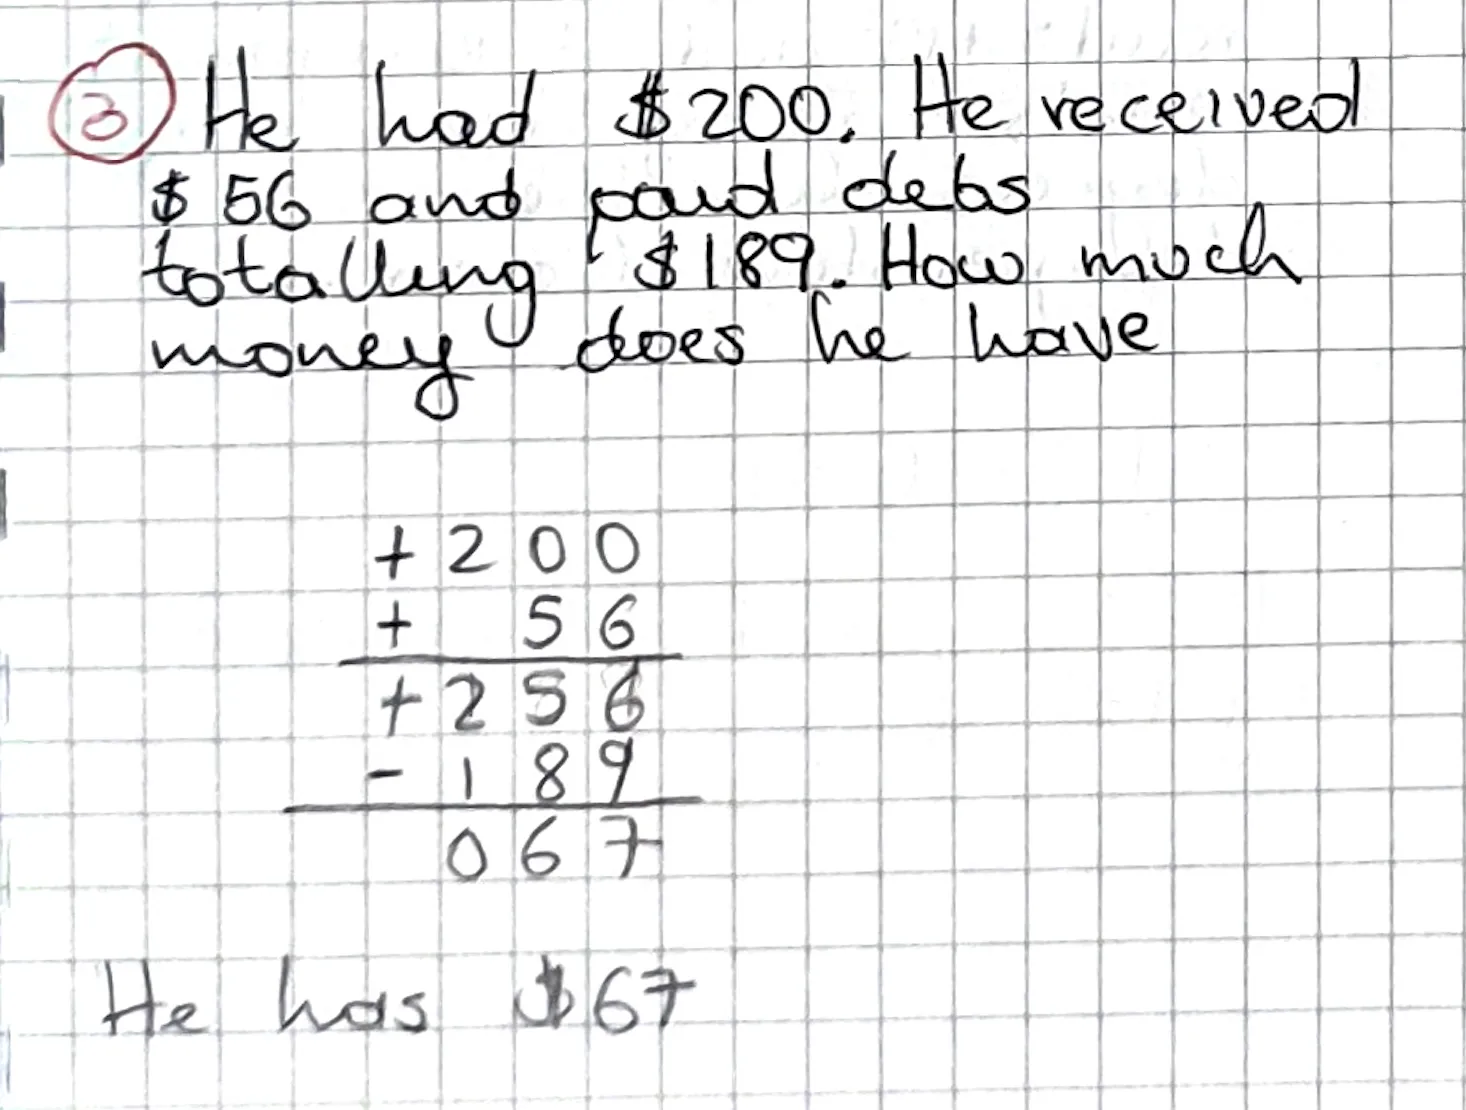 3 He had $200. He received
$56 and paid debs
totalling $189. How much
money does he have
+200
+ 56
+256
-189
067
He has $67